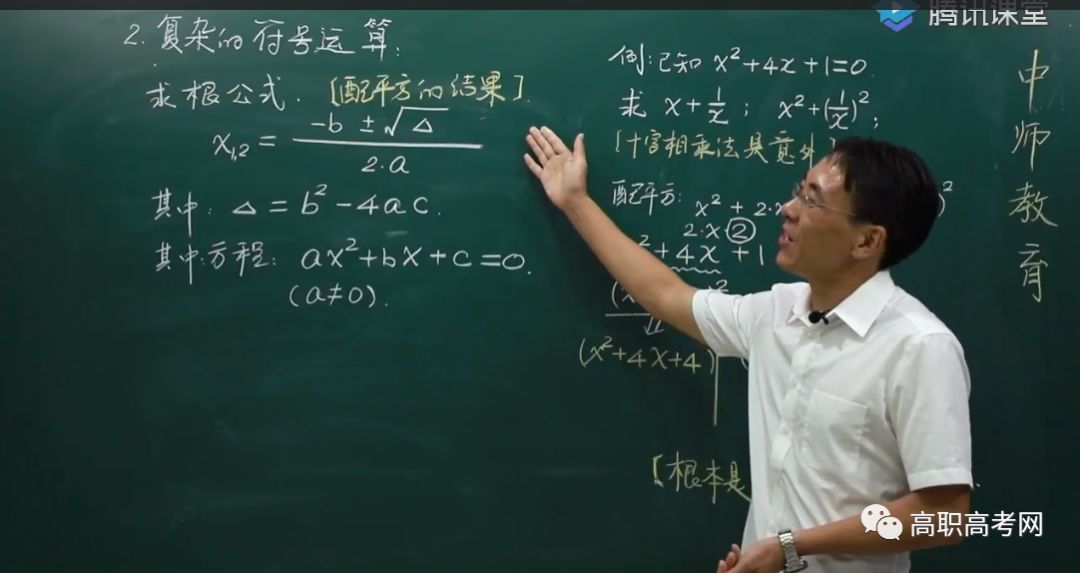 腾讯课堂
2. 复杂的符号运算:
求根公式. [配平方的结果].
x₁,₂ = (-b ±√Δ) / (2·a)
其中: Δ = b² - 4ac.
其中:方程: ax²+bx+c=0.
(a≠0).
例:已知 x²+4x+1=0.
求 x+1/x ; x²+(1/x)²;
[十字相乘法是意外]
配平方: x² + 2·x
2·x ②
² + 4x + 1
(x ²
(x²+4x+4)
[根本是
中师教育
高职高考网